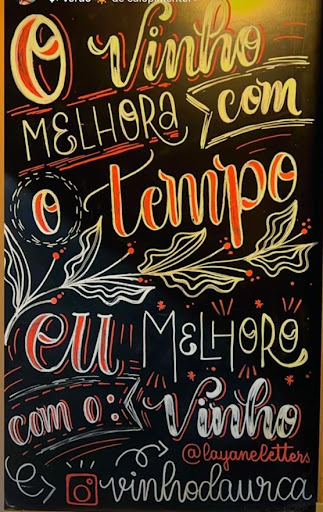 O Vinho
MELHORA com
o tempo
eu MELHORO
com o: Vinho
@layaneletters
vinhodaurca